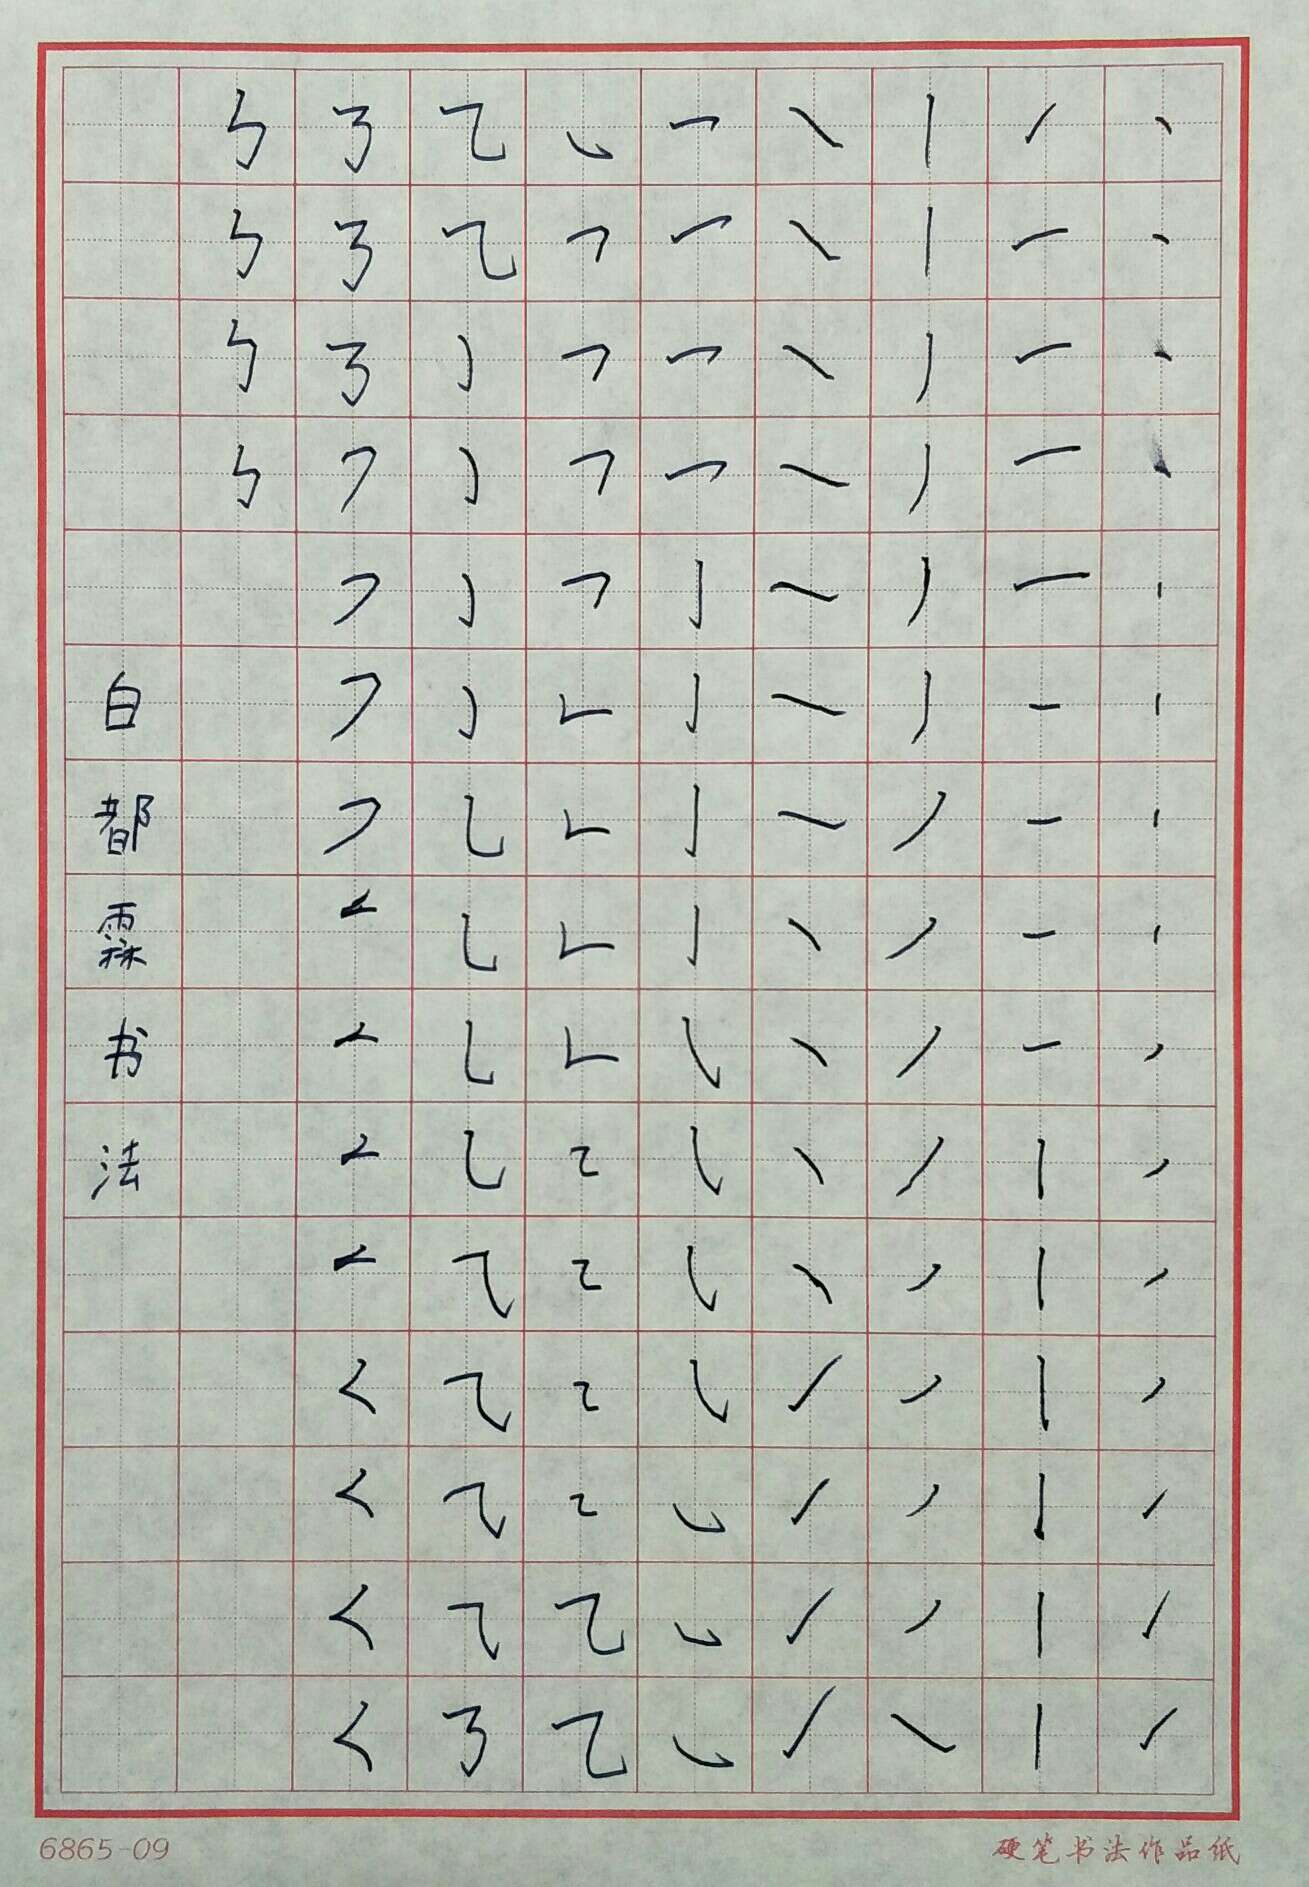 白都霖书法
6865-09
硬笔书法作品纸